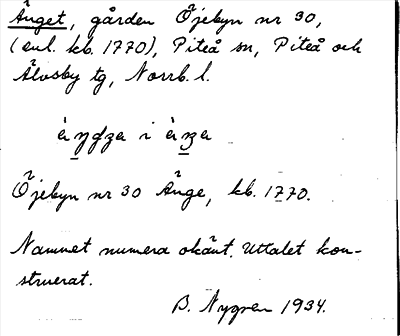 Änget, gården Öjebyn nr 30,
(enl. kb. 1770), Piteå sn, Piteå och
Älvsby tg, Norrb. l.
i
Öjebyn nr 30 Änge, kb. 1770.
Namnet numera okänt. Uttalet kon-
struerat.
B. Nygren 1934.